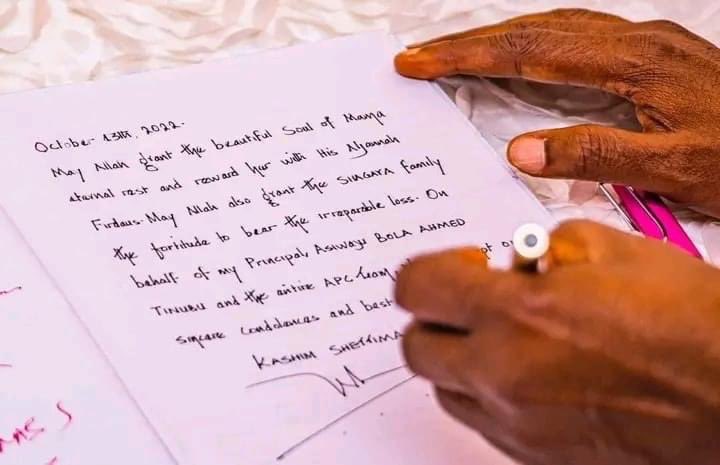 October 13th, 2022.
May Allah grant the beautiful Soul of Mama
eternal rest and reward her with His Aljannah
Firdaus. May Allah also grant the SHAGAYA family
the fortitude to bear the irreparable loss. On
behalf of my Principal, Asiwaju BOLA AHMED
TINUBU and the entire APC team,
sincere condolences and best
KASHIM SHETTIMA